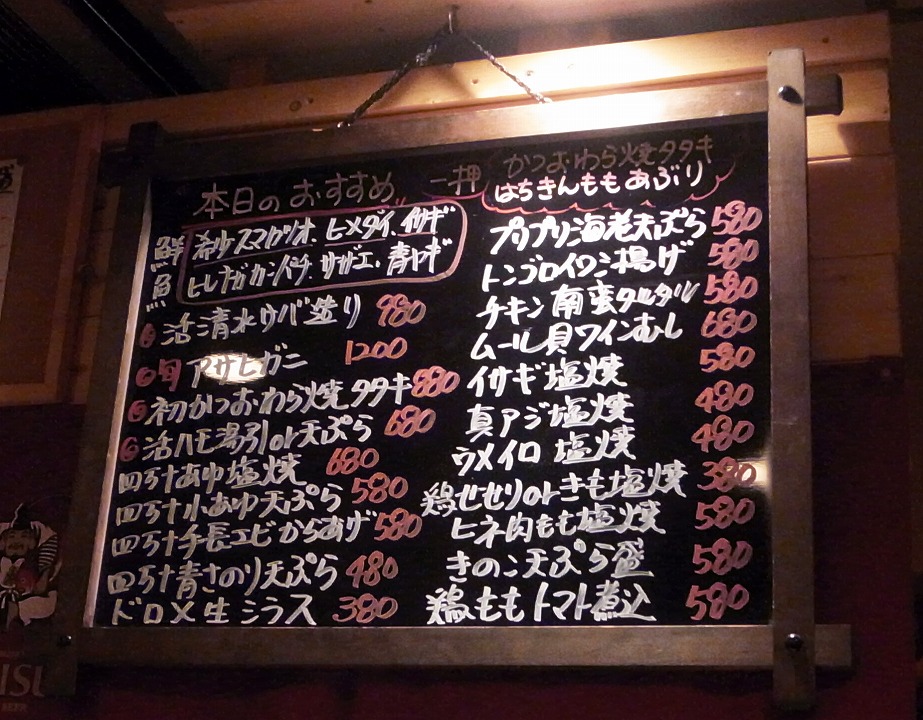 本日のおすすめ 一押
かつおわら焼タタキ
はちきんももあぶり
鮮魚
希少スマガツオ、ヒメダイ、イサギ
ヒレナガカンパチ、サザエ、青ヤギ
活清水サバ造り 980
旬 アサヒガニ 1200
初かつおわら焼タタキ 880
活ハモ湯引or天ぷら 680
四万十あゆ塩焼 680
四万十小あゆ天ぷら 580
四万十手長エビからあげ 580
四万十青さのり天ぷら 480
ドロメ生シラス 380
プリプリ海老天ぷら 580
トンゴロイワシ揚げ 580
チキン南蛮タルタル 580
ムール貝ワインむし 680
イサギ塩焼 580
真アジ塩焼 480
ウメイロ塩焼 480
鶏せせりorきも塩焼 380
ヒネ肉もも塩焼 580
きのこ天ぷら盛 580
鶏ももトマト煮込 580